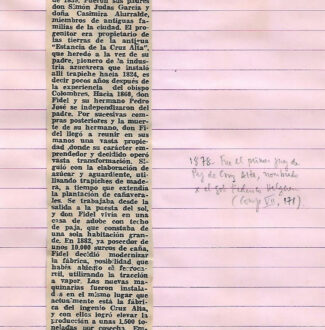 de 1835. Fueron sus padres
don Simón Judas García y
doña Casimira Alurralde,
miembros de antiguas fa-
milias de la ciudad. El pro-
genitor era propietario de
las tierras de la antigua
"Estancia de la Cruz Alta",
que heredó a la vez de su
padre, pionero de la indus-
tria azucarera que instaló
allí trapiche hacia 1824, es
decir pocos años después de
la experiencia del obispo
Colombres. Hacia 1860, don
Fidel y su hermano Pedro
José se independizaron del
padre. Por sucesivas com-
pras posteriores y la muer-
te de su hermano, don Fi-
del llegó a reunir en sus
manos una vasta propie-
dad, donde su carácter em-
prendedor y decidido operó
vasta transformación. Si-
guió con la elaboración de
azúcar y aguardiente, uti-
lizando trapiches de made-
ra, a tiempo que extendía
la plantación de cañavera-
les. Se trabajaba desde la
salida a la puesta del sol,
y don Fidel vivía en una
casa de adobe con techo
de paja, que constaba de
una sola habitación gran-
de. En 1882, ya poseedor de
unos 10.000 surcos de caña,
Fidel decidió modernizar
la fábrica, posibilidad que
había abierto el ferroca-
rril, utilizando la tracción
a vapor. Las nuevas ma-
quinarias fueron instala-
das en el mismo lugar que
actualmente está la fábri-
ca del ingenio Cruz Alta,
y con ellos logró elevar la
producción a unas 1.500 to-
neladas por cosecha. Em-
1878. Fue el primer juez de
Paz de Cruz Alta, nombrado
x el Gob. Federico Helguera
171)